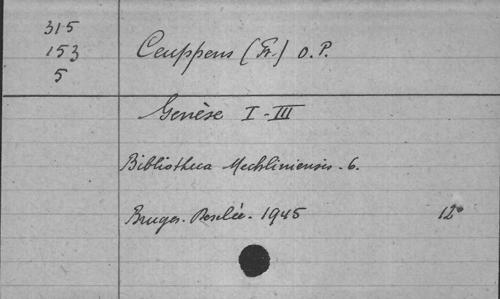 315
153
5
Ceuppens (Fr.) O.P.
Genèse I-III
Bibliotheca Mechliniensis. 6.
Bruges. Desclée. 1945 12°